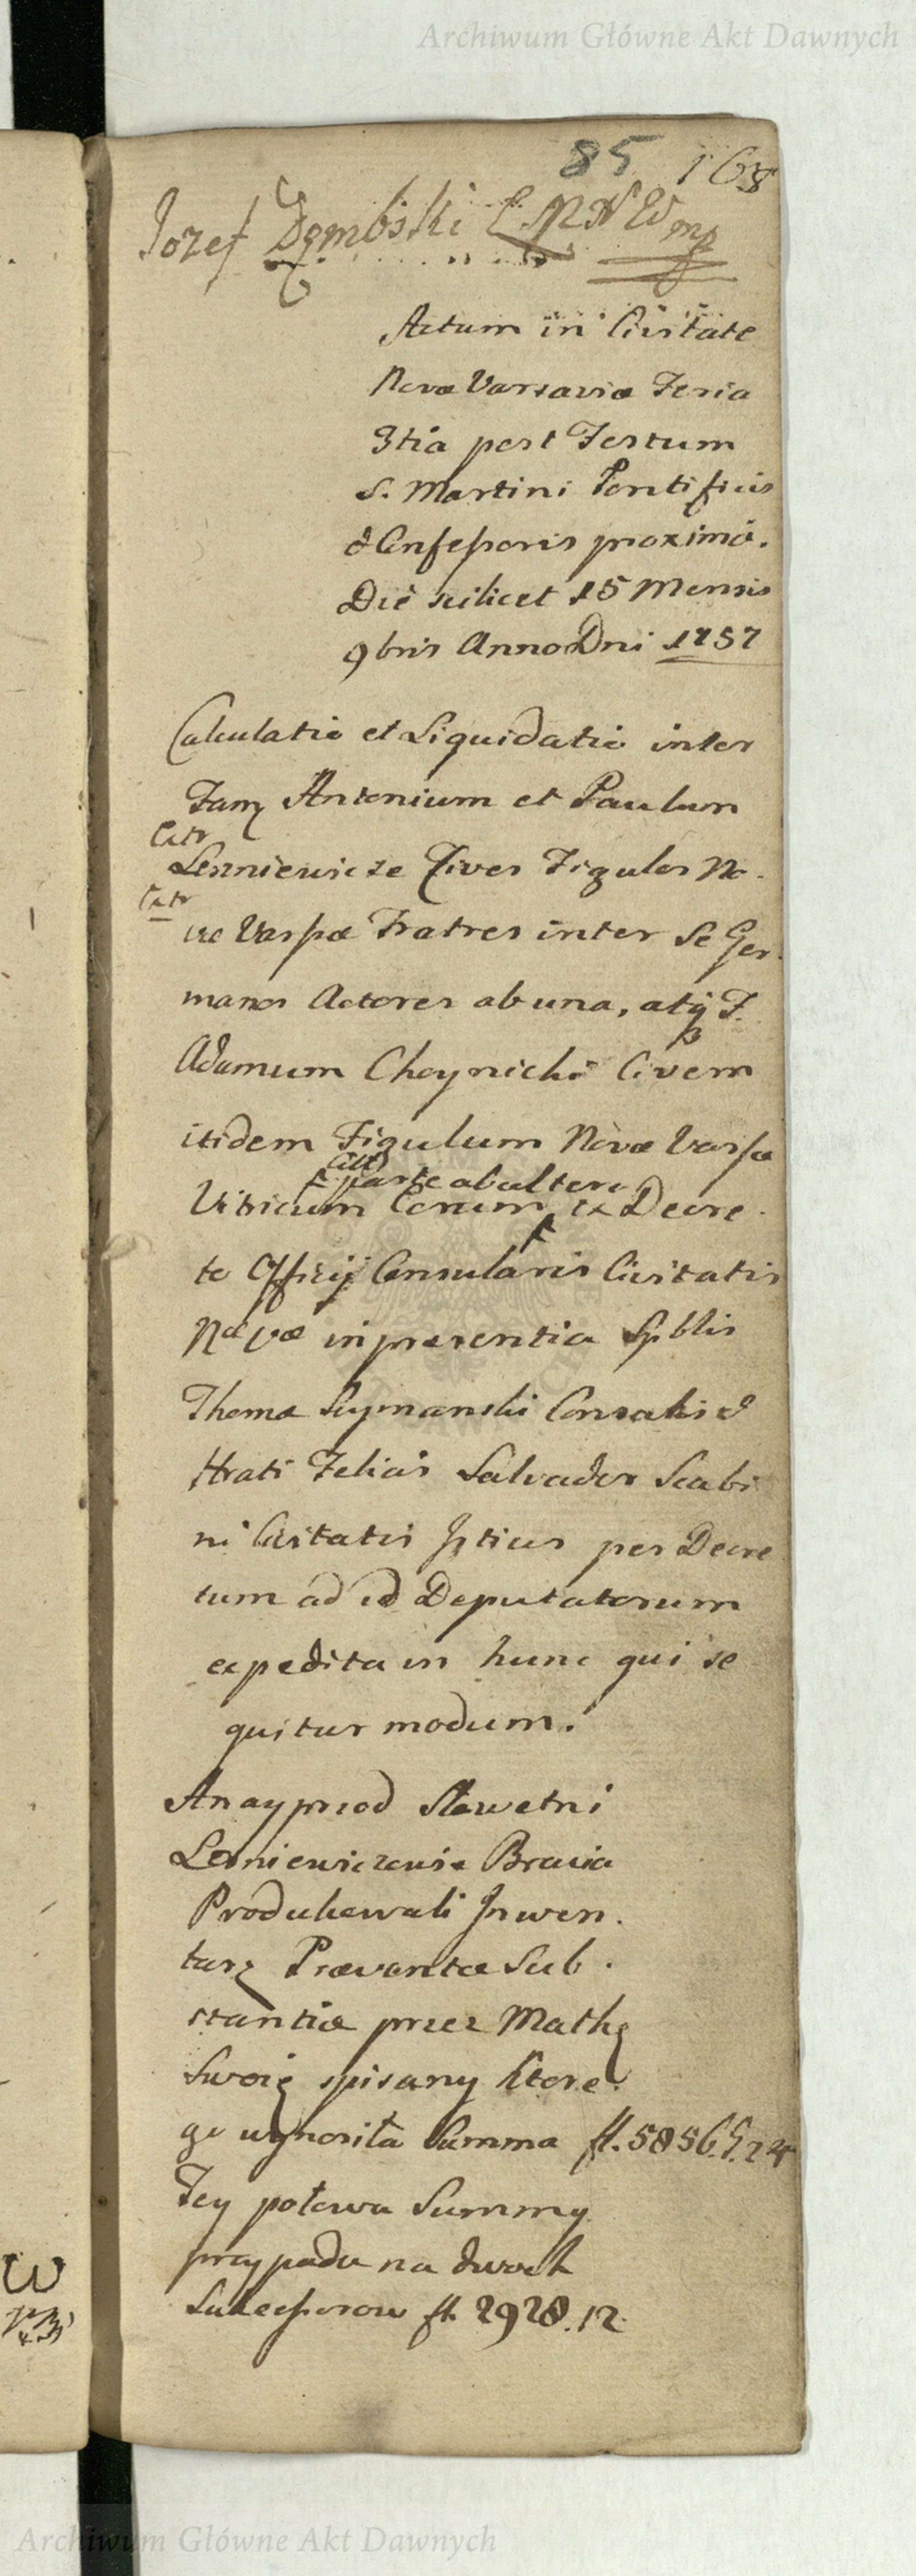 Archiwum Główne Akt Dawnych
85 168
Jozef Dęmbski
Actum in Civitate
Nova Varsaviæ Feria
3tia post Festum
S. Martini Pontificis
& Confessoris proximâ.
Die scilicet 15 Mensis
9bris Anno Dni 1757
Calculatio et Liquidatio inter
Fam Antonium et Paulum
Lesniewicze Cives Figulos No-
væ Varsæ Fratres inter se Ger-
manos Actores ab una, atq F.
Adamum Choynicki Civem
itidem Figulum Novæ Varsæ
parte ab altera
Vitricum Eorum ex Decre-
to Officij Consularis Civitatis
Novæ in præsentia Spblis
Thomæ Szymanski Consulis &
Hrati Felicis Salvador Scabi
ni Civitatis Jstius per Decre
tum ad id Deputatorum
expedita in hunc qui se
quitur modum.
Anayprzod Sławetni
Lesniewiczowie Bracia
Produkowali Jnwen-
tarz Relictæ Sub-
stantiæ przez Matkę
Swoię spisany ktore-
go wynosiła Summa fl. 5856 g. 24
Tey połowa Summy
przypada na dwoch
Sukcessorow fl. 2928.12
Archiwum Główne Akt Dawnych